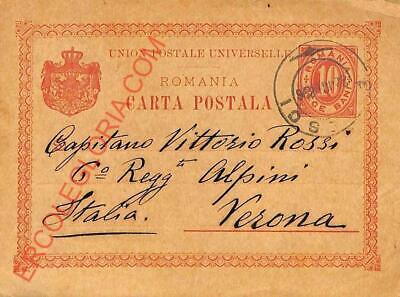 UNION POSTALE UNIVERSELLE
ROMANIA
CARTA POSTALA
ROMANIA
10
ZECE BANI
Capitano Vittorio Rossi
6º Regg.ᵗᵒ Alpini
Italia. Verona
ERCOLEGLORIA.COM